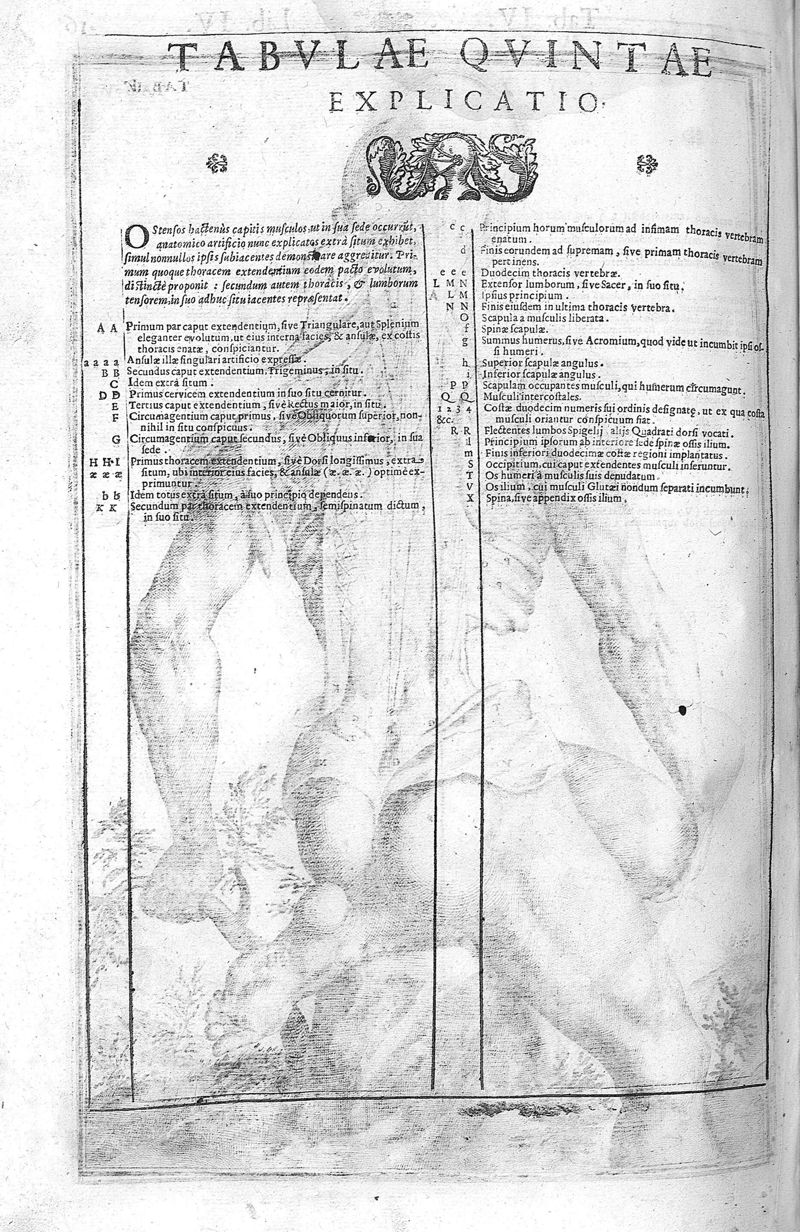 TABVLAE QVINTAE
EXPLICATIO.
OStensos hactenùs capitis musculos, ut in sua sede occurrũt,
anatomico artificio nunc explicatos extrà situm exhibet,
simul nonnullos ipsis subiacentes demonstrare aggreditur. Pri-
mum quoque thoracem extendentium eodem pacto evolutum,
distinctè proponit : secundum autem thoracis, & lumborum
tensorem, in suo adhuc situ iacentes repræsentat.
A A Primum par caput extendentium, sive Triangulare, aut Splenium
eleganter evolutum, ut eius interna facies, & ansulæ, ex costis
thoracis enatæ, conspiciantur.
a a a a Ansulæ illæ singulari artificio expressæ.
B B Secundus caput extendentium, Trigeminus, in situ.
C Idem extrà situm.
D D Primus cervicem extendentium in suo situ cernitur.
E Tertius caput extendentium, sive Rectus maior, in situ.
F Circumagentium caput primus, sive Obliquorum superior, non-
nihil in situ conspicuus.
G Circumagentium caput secundus, sive Obliquus inferior, in sua
sede.
H H I Primus thoracem extendentium, sive Dorsi longissimus, extra
æ æ æ situm, ubi interior eius facies, & ansulæ (æ. æ. æ.) optimè ex-
primuntur.
b b Idem totus extrà situm, à suo principio dependens.
K K Secundum par thoracem extendentium, semispinatum dictum,
in suo situ.
c c Principium horum musculorum ad infimam thoracis vertebram
enatum.
d Finis eorundem ad supremam, sive primam thoracis vertebram
pertinens.
e e e Duodecim thoracis vertebræ.
L M N Extensor lumborum, sive Sacer, in suo situ.
L M Ipsius principium.
N N Finis eiusdem in ultima thoracis vertebra.
O Scapula a musculis liberata.
f Spina scapulæ.
g Summus humerus, sive Acromium, quod vide ut incumbit ipsi os-
si humeri.
h Superior scapulæ angulus.
i Inferior scapulæ angulus.
P P Scapulam occupantes musculi, qui humerum circumagunt.
Q Q Musculi intercostales.
1 2 3 4 Costæ duodecim numeris sui ordinis designatæ, ut ex qua costa
&c. musculi oriantur conspicuum fiat.
R R Flectentes lumbos Spigelij, alijs Quadrati dorsi vocati.
l Principium ipsorum ab interiore sede spinæ ossis ilium.
m Finis inferiori duodecimæ costæ regioni implantatus.
S Occipitium, cui caput extendentes musculi inseruntur.
T Os humeri à musculis suis denudatum.
V Os ilium, cui musculi Glutæi nondum separati incumbunt.
X Spina, sive appendix ossis ilium.